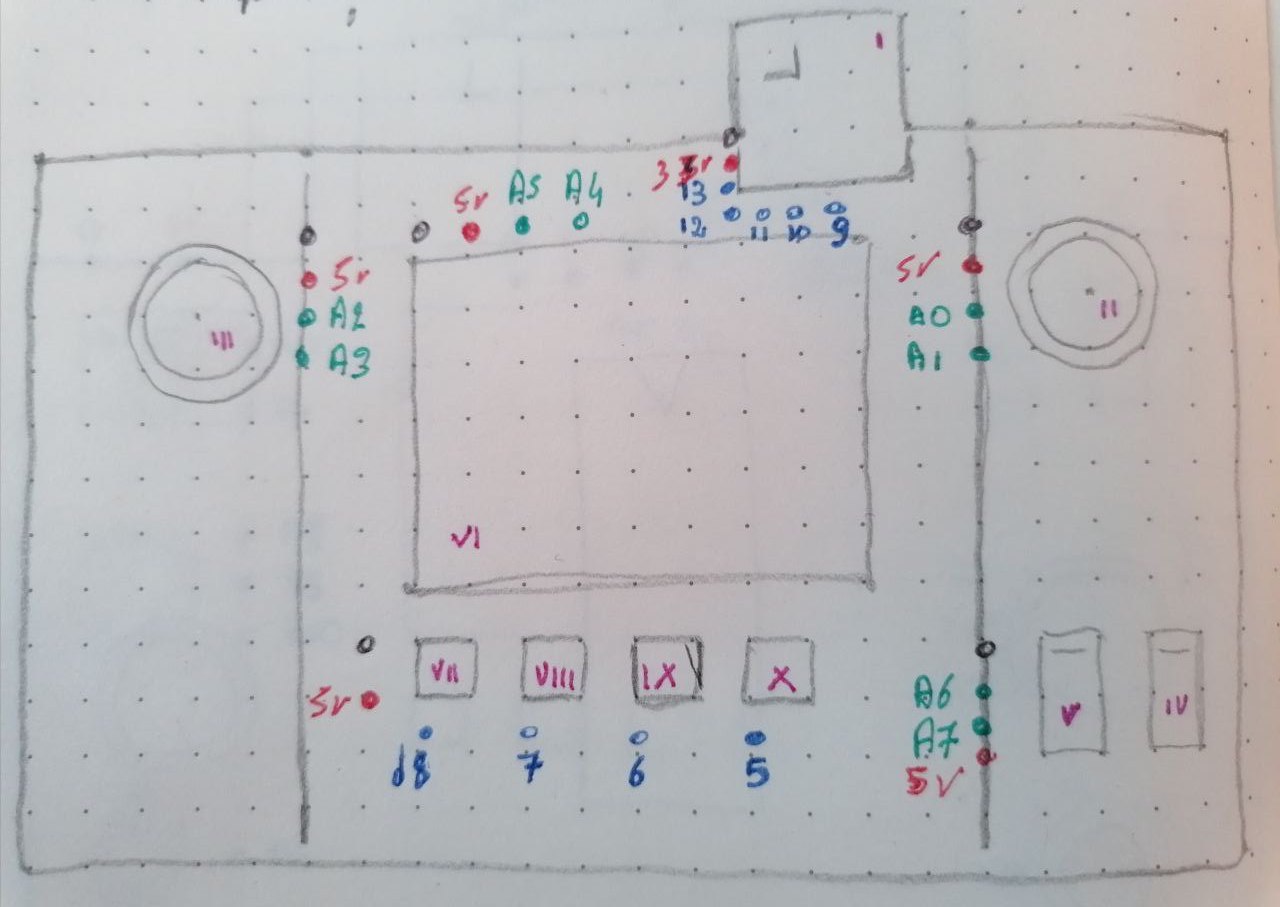 I
5v A5 A4 3 3v
13
12 11 10 9
III 5v
A2
A3
5V
A0
A1
II
VI
VII VIII IX X
5v
d8 7 6 5
A6
A7
5V
V IV